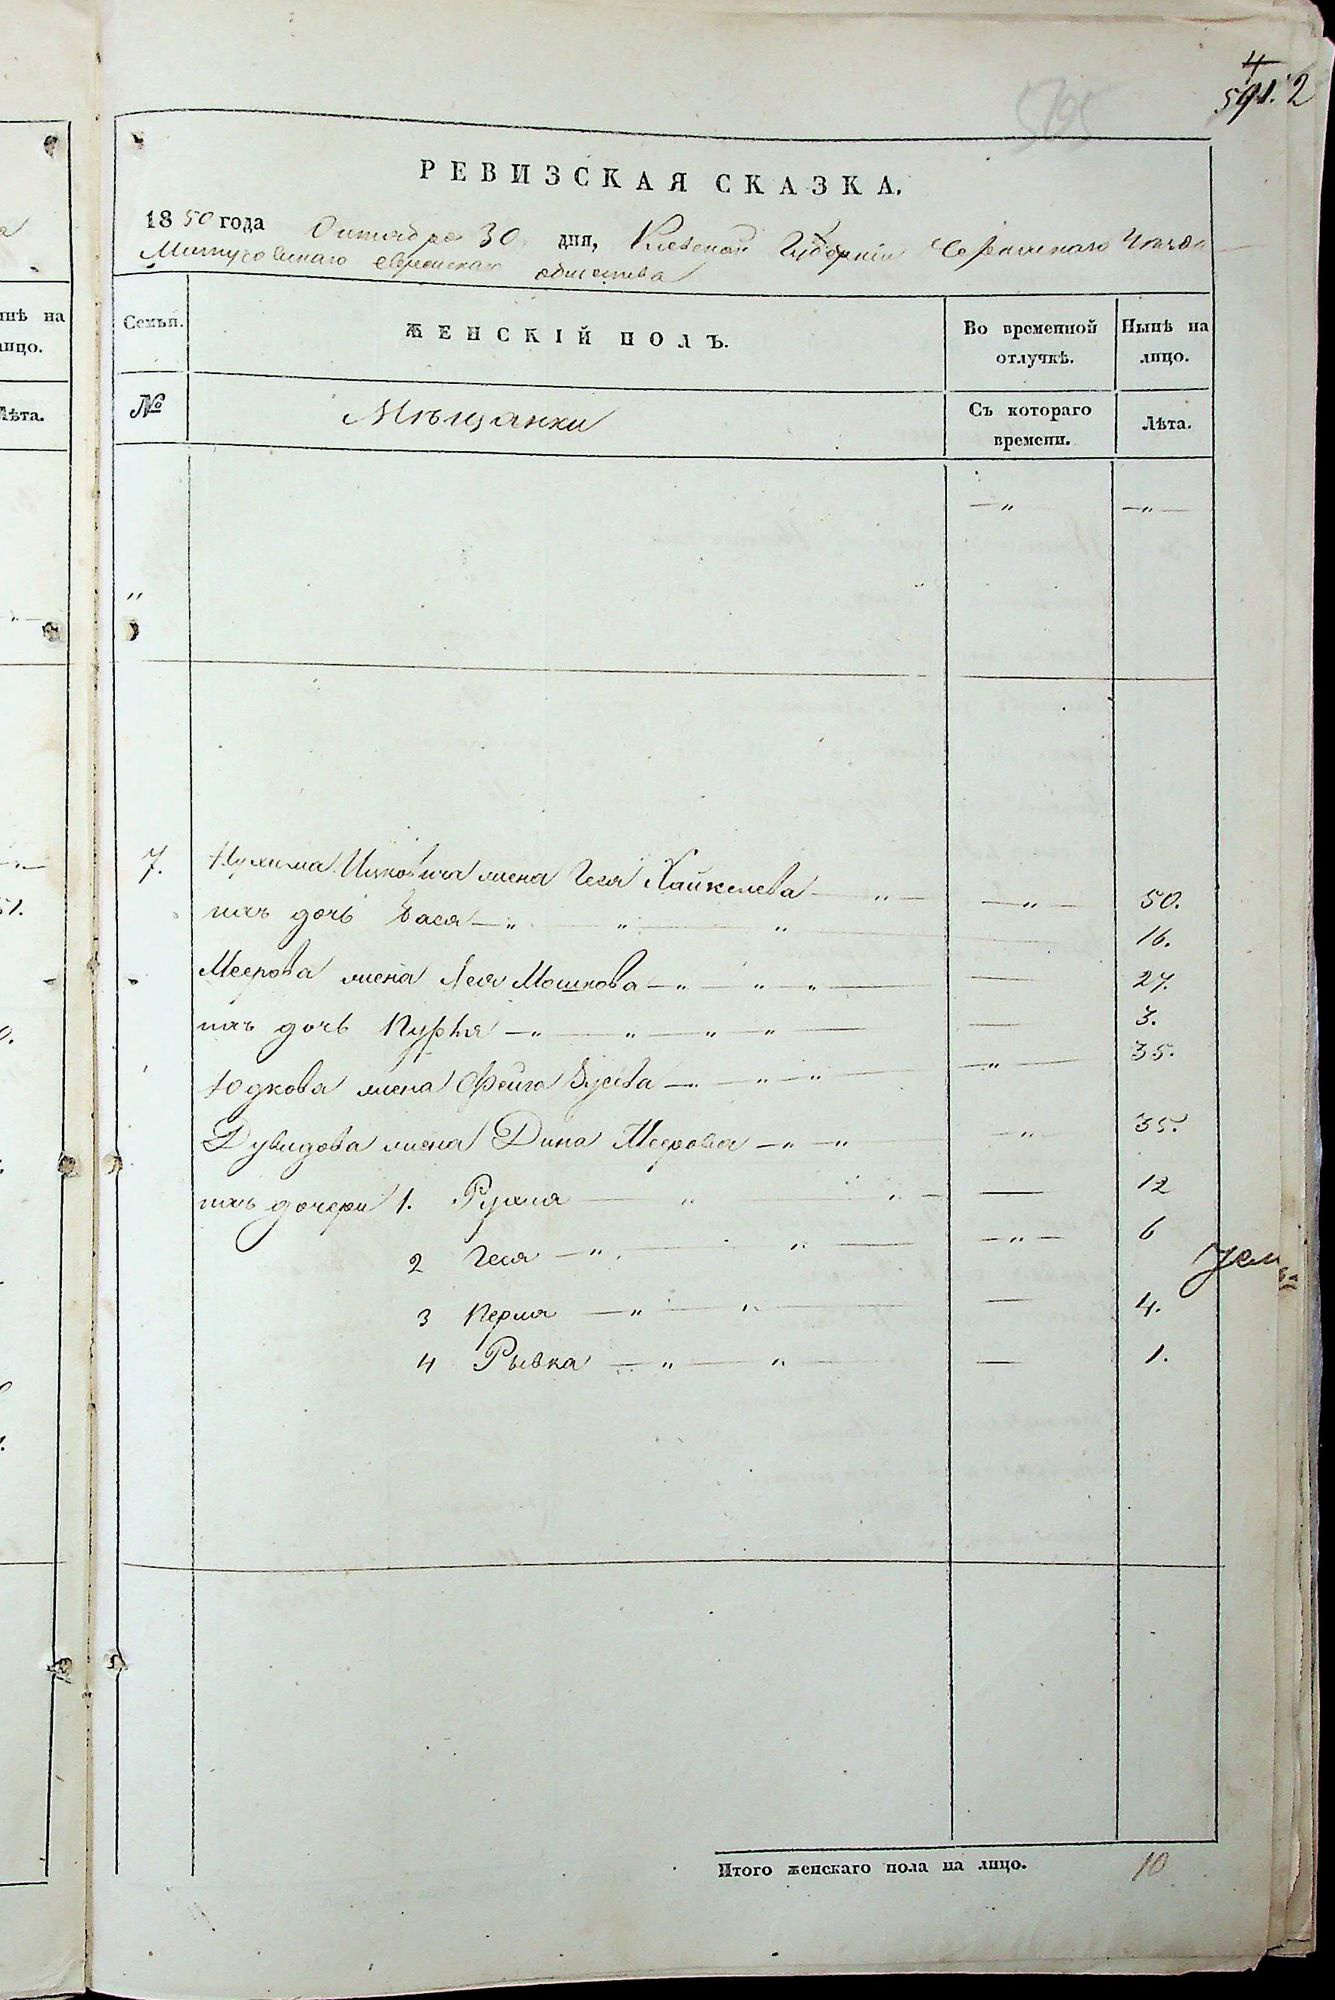 4
591. 2
5795
РЕВИЗСКАЯ СКАЗКА.
1850 года Октября 30 дня, Киевской Губернии Уезда
еврейскаго общества
Семьи. ЖЕНСКІЙ ПОЛЪ. Во временной отлучкѣ. Нынѣ на лицо.
№ Мѣщанки Съ котораго времени. Лѣта.
7. Нухима Ицковича жена Геся Хайкелева 50.
ихъ дочь Бася 16.
Меерова жена Лея Мошкова 27.
ихъ дочь 3.
Юдкова жена Фейга 35.
Дувидова жена Дина Меерова 35.
ихъ дочери 1. Рухля 12
2 Геся 6
3 Перля 4.
4 Рывка 1.
Итого женскаго пола на лицо. 10